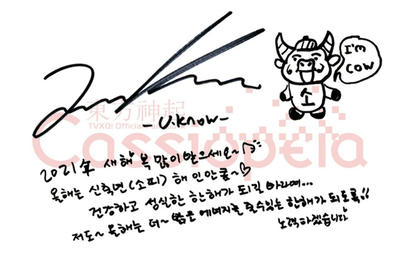 I'm
COW
소
-U.Know-
東方神起
TVXQ! Official
Cassiopeia
2021年 새해 복 많이 받으세요~
올해는 신축년(소띠) 해 인만큼~♡
건강하고 성실한 한해가 되길 바라며...
저도~ 올해는 더~ 밝은 에너지를 줄수있는 한해가 되도록!!
노력하겠습니다